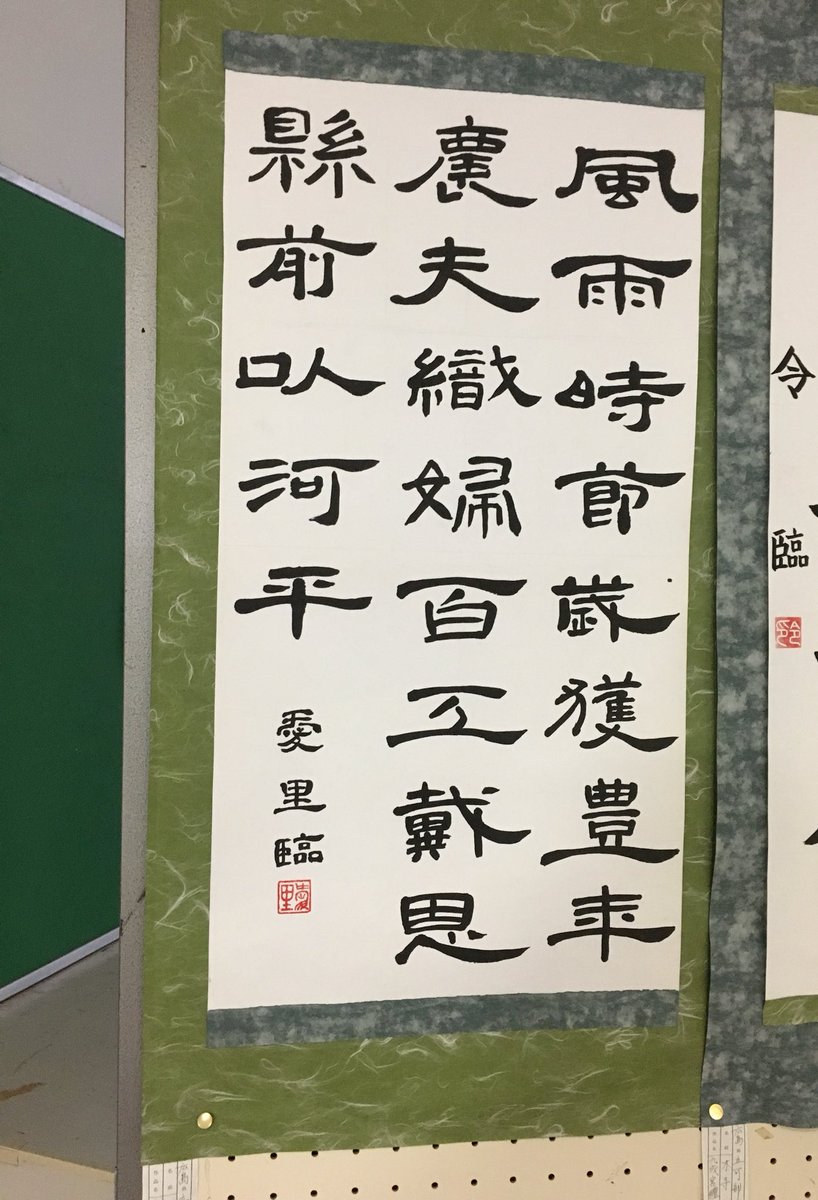 風雨時節歲獲豊年
農夫織婦百工戴恩
縣前以河平
愛里臨
愛里
令
臨